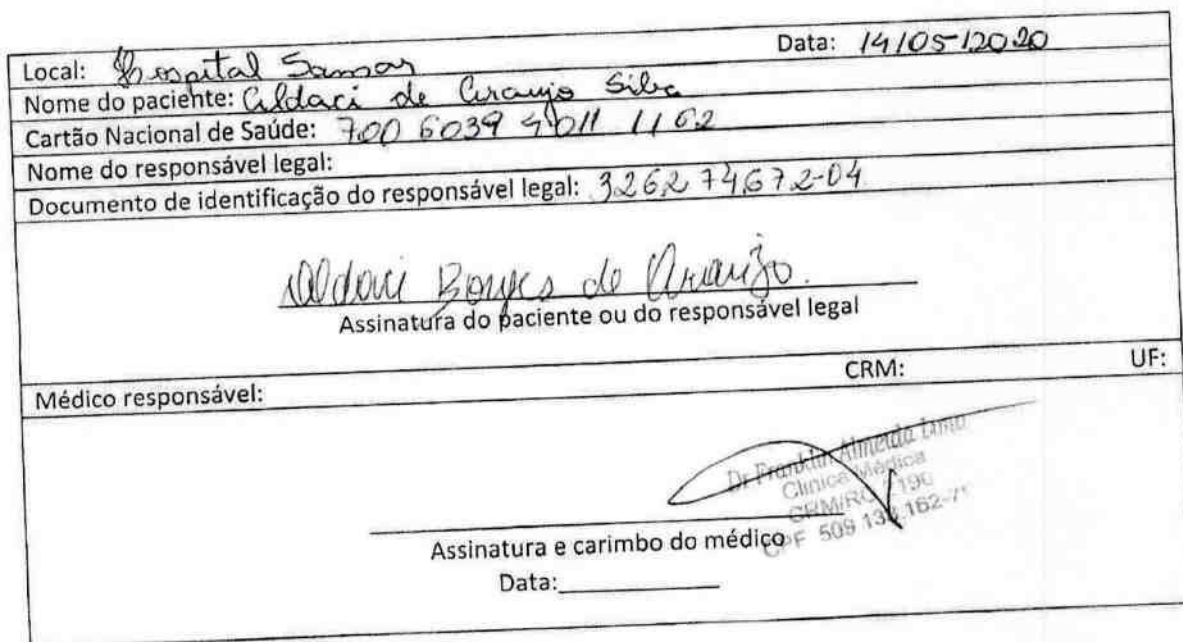 Local: Hospital Samar Data: 14/05/2020
Nome do paciente: Aldaci de Araujo Silva
Cartão Nacional de Saúde: 700 6039 4011 1162
Nome do responsável legal:
Documento de identificação do responsável legal: 326274672-04
Aldaci Borges de Araujo.
Assinatura do paciente ou do responsável legal
Médico responsável: CRM: UF:
Dr Franklin Almeida Lima
Clínica Médica
CRM/RO 190
CPF 509 13 162-7
Assinatura e carimbo do médico
Data: